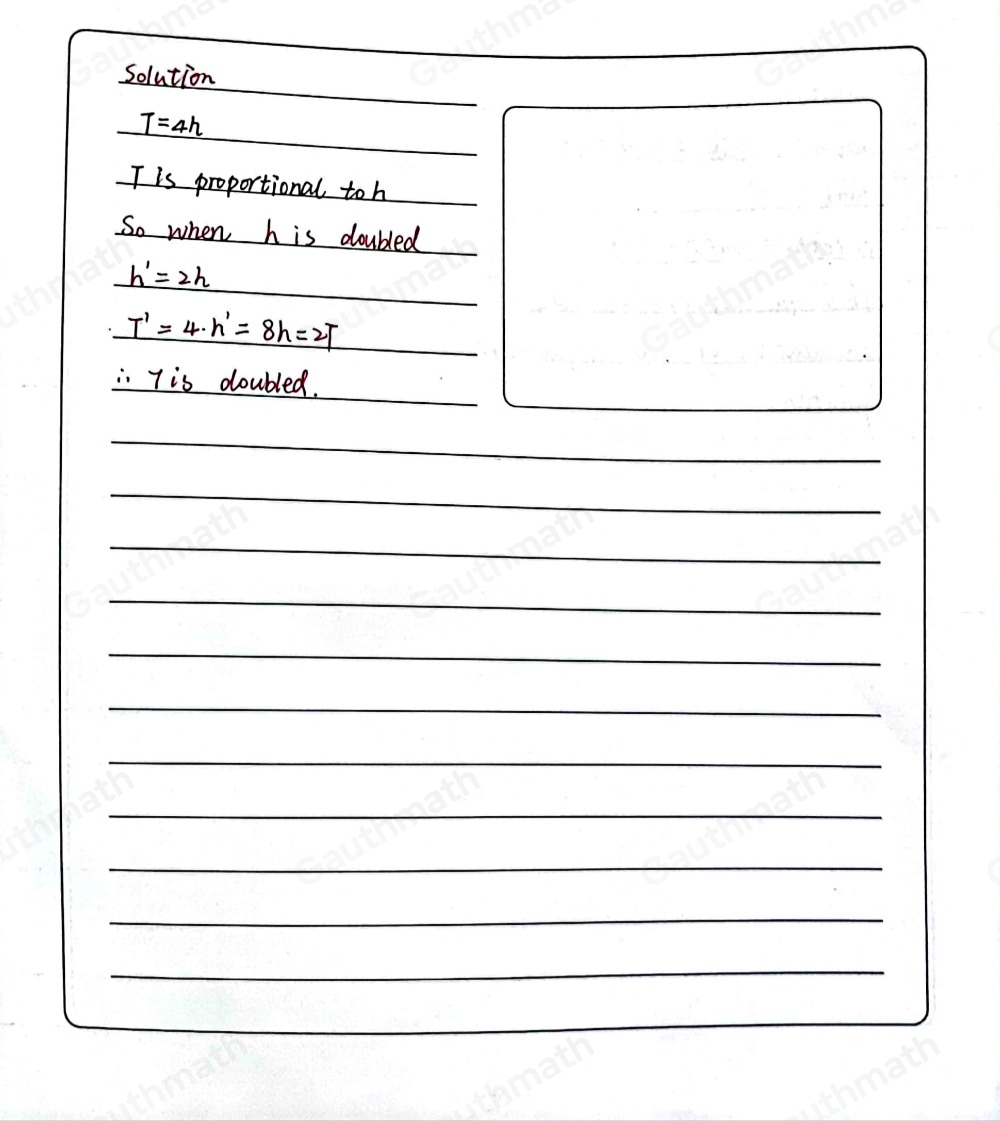 Solution
T=4h
T is proportional to h
So when h is doubled
h'=2h
T'=4·h'=8h=2T
∴ T is doubled.